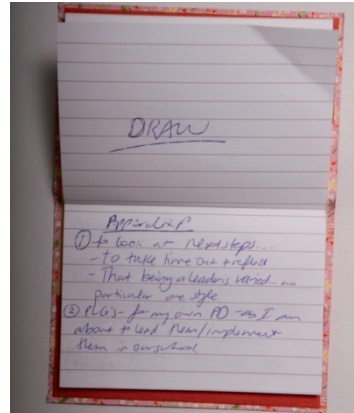 DRAW
① to look at next steps...
- to take time out + reflect
- That being a leader is varied.. no
particular one style
② PLG's - for my own PD - as I am
about to lead them/implement
them in our school